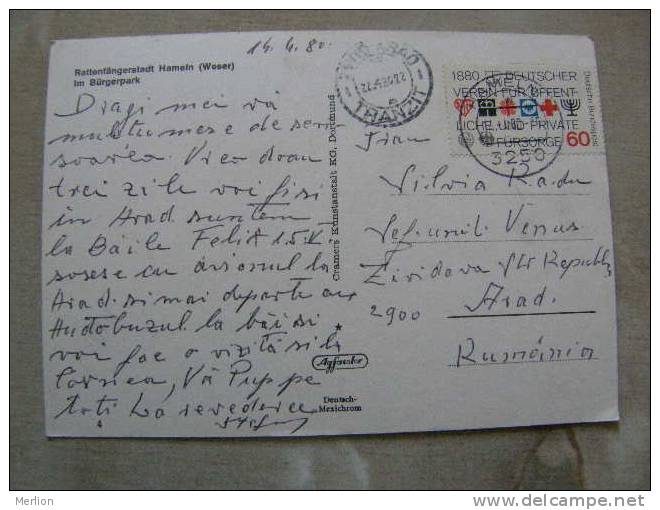 14.4.80.
Rattenfängerstadt Hameln (Weser)
Im Bürgerpark
Dragi mei vă
multumesc de scri
soarea. Vreo doau
trei zile voi fi si
in Arad suntem
la Băile Felix 1.5.
sosesc cu avionul la
Arad si mai departe cu
Autobuzul la băi si
voi fac o vizită si la
Cornea, Vă Puppe
toti La revedere
4
Cramers Kunstanstalt KG, Dortmund
Agfacolor
Deutsch-
Mexichrom
TRANZIT
1880 DEUTSCHER
VEREIN FÜR ÖFFENT-
LICHE UND PRIVATE
FÜRSORGE 60
Deutsche Bundespost
3250
Silvia Radu
Venus
Str Republ
2900 Arad.
Rumänien
Merlion
www.delcampe.net